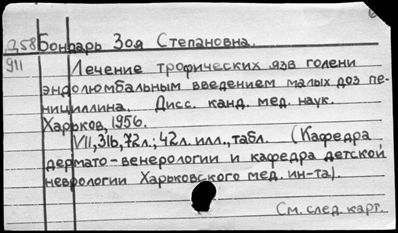 358 Бондарь Зоя Степановна.
911 Лечение трофических язв голени
эндолюмбальным введением малых доз пе-
нициллина. Дисс. канд. мед. наук.
Харьков, 1956.
VII, 316, 72л.; 42л. илл., табл. (Кафедра
дермато-венерологии и кафедра детской
неврологии Харьковского мед. ин-та).
См. след. карт.